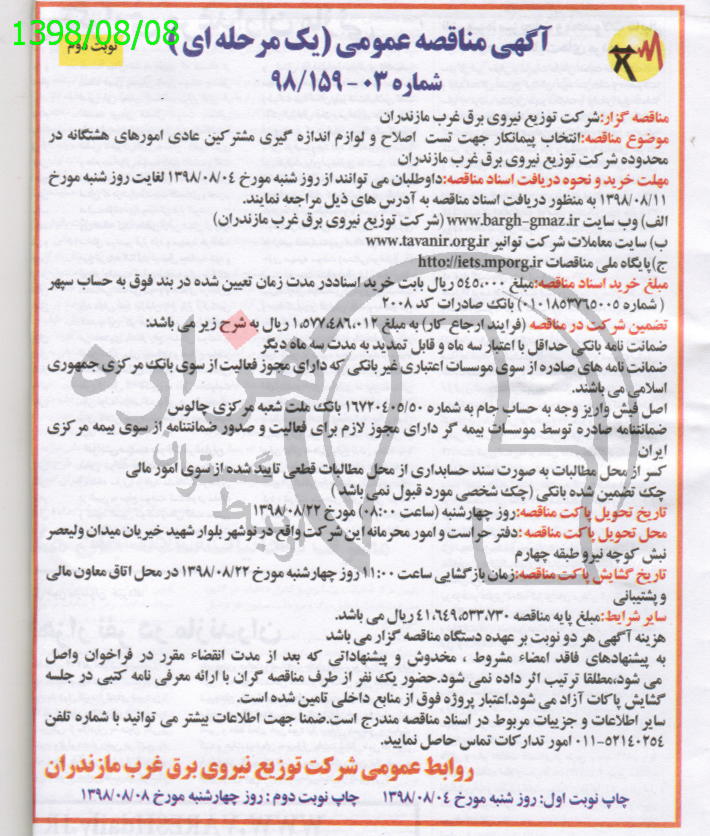 1398/08/08
آگهی مناقصه عمومی (یک مرحله ای)
نوبت دوم
شماره ۰۳ - ۹۸/۱۵۹
مناقصه گزار:شرکت توزیع نیروی برق غرب مازندران
موضوع مناقصه:انتخاب پیمانکار جهت تست اصلاح و لوازم اندازه گیری مشترکین عادی امورهای هشتگانه در
محدوده شرکت توزیع نیروی برق غرب مازندران
مهلت خرید و نحوه دریافت اسناد مناقصه:داوطلبان می توانند از روز شنبه مورخ ۱۳۹۸/۰۸/۰۴ لغایت روز شنبه مورخ
۱۳۹۸/۰۸/۱۱ به منظور دریافت اسناد مناقصه به آدرس های ذیل مراجعه نمایند.
الف) وب سایت www.bargh-gmaz.ir (شرکت توزیع نیروی برق غرب مازندران)
ب) سایت معاملات شرکت توانیر www.tavanir.org.ir
ج) پایگاه ملی مناقصات http://iets.mporg.ir
مبلغ خرید اسناد مناقصه:مبلغ ۵۴۵،۰۰۰ ریال بابت خرید اسناددر مدت زمان تعیین شده در بند فوق به حساب سپهر
( شماره ۰۱۰۱۸۵۳۷۶۵۰۰۵) بانک صادرات کد ۲۰۰۸
تضمین شرکت در مناقصه (فرایند ارجاع کار) به مبلغ ۱،۵۷۷،۴۸۶،۰۱۲ ریال به شرح زیر می باشد:
ضمانت نامه بانکی حداقل با اعتبار سه ماه و قابل تمدید به مدت سه ماه دیگر
ضمانت نامه های صادره از سوی موسسات اعتباری غیر بانکی که دارای مجوز فعالیت از سوی بانک مرکزی جمهوری
اسلامی می باشند.
اصل فیش واریز وجه به حساب جام به شماره ۱۶۷۲۰۴۰۵/۵۰ بانک ملت شعبه مرکزی چالوس
ضمانتنامه صادره توسط موسسات بیمه گر دارای مجوز لازم برای فعالیت و صدور ضمانتنامه از سوی بیمه مرکزی
ایران
کسر از محل مطالبات به صورت سند حسابداری از محل مطالبات قطعی تایید شده از سوی امور مالی
چک تضمین شده بانکی (چک شخصی مورد قبول نمی باشد )
تاریخ تحویل پاکت مناقصه:روز چهارشنبه (ساعت ۰۸:۰۰) مورخ ۱۳۹۸/۰۸/۲۲
محل تحویل پاکت مناقصه :دفتر حراست و امور محرمانه این شرکت واقع در نوشهر بلوار شهید خیریان میدان ولیعصر
نبش کوچه نیرو طبقه چهارم
تاریخ گشایش پاکت مناقصه:زمان بازگشایی ساعت ۱۱:۰۰ روز چهارشنبه مورخ ۱۳۹۸/۰۸/۲۲ در محل اتاق معاون مالی
و پشتیبانی
سایر شرایط:مبلغ پایه مناقصه ۴۱،۶۴۹،۵۳۳،۷۳۰ریال می باشد.
هزینه آگهی هر دو نوبت بر عهده دستگاه مناقصه گزار می باشد
به پیشنهادهای فاقد امضاء مشروط ، مخدوش و پیشنهاداتی که بعد از مدت انقضاء مقرر در فراخوان واصل
می شود،مطلقا ترتیب اثر داده نمی شود.حضور یک نفر از طرف مناقصه گران با ارائه معرفی نامه کتبی در جلسه
گشایش پاکات آزاد می شود.اعتبار پروژه فوق از منابع داخلی تامین شده است.
سایر اطلاعات و جزییات مربوط در اسناد مناقصه مندرج است.ضمنا جهت اطلاعات بیشتر می توانید با شماره تلفن
۰۱۱-۵۲۱۴۰۲۵۴ امور تدارکات تماس حاصل نمایید.
روابط عمومی شرکت توزیع نیروی برق غرب مازندران
چاپ نوبت اول: روز شنبه مورخ ۱۳۹۸/۰۸/۰۴ چاپ نوبت دوم : روز چهارشنبه مورخ ۱۳۹۸/۰۸/۰۸
هزاره